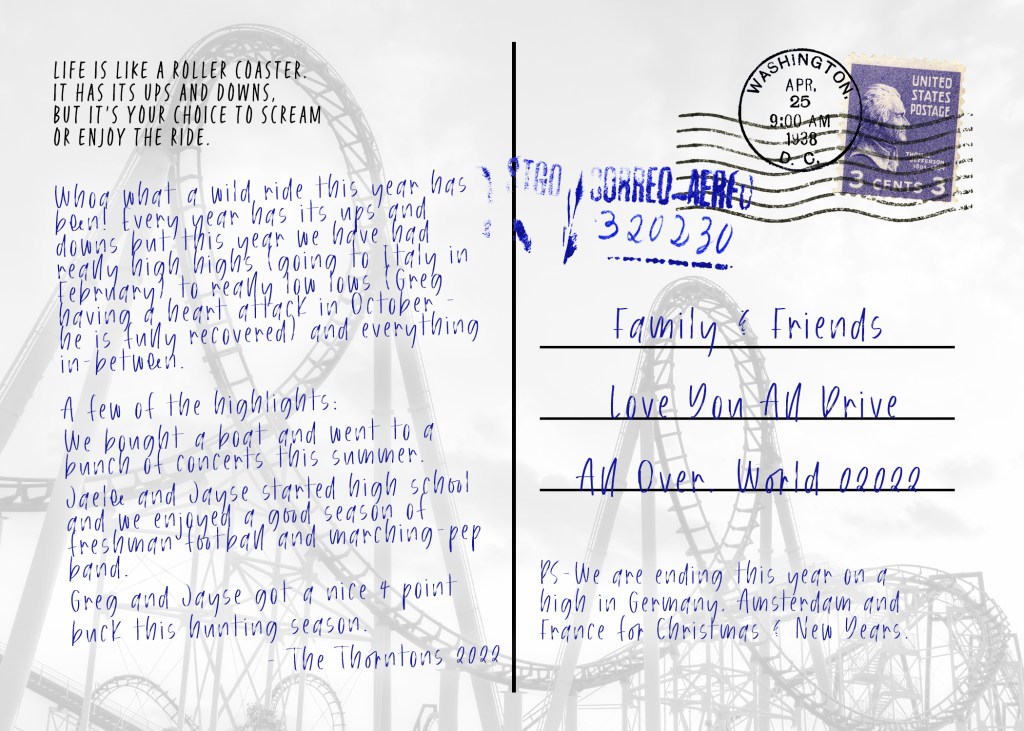 LIFE IS LIKE A ROLLER COASTER.
IT HAS ITS UPS AND DOWNS,
BUT IT'S YOUR CHOICE TO SCREAM
OR ENJOY THE RIDE.
Whoa what a wild ride this year has
been! Every year has its ups and
downs but this year we have had
really high highs (going to Italy in
February) to really low lows (Greg
having a heart attack in October -
he is fully recovered) and everything
in-between.
A few of the highlights:
We bought a boat and went to a
bunch of concerts this summer.
Jaelee and Jayse started high school
and we enjoyed a good season of
freshman football and marching-pep
band.
Greg and Jayse got a nice 4 point
buck this hunting season.
- The Thorntons 2022
WASHINGTON,
APR,
25
9:00 AM
1938
D. C.
UNITED
STATES
POSTAGE
THOMAS
JEFFERSON
3 CENTS 3
CORREO AEREO
320230
Family & Friends
Love You All Drive
All Over, World 02022
PS-We are ending this year on a
high in Germany, Amsterdam and
France for Christmas & New Years.